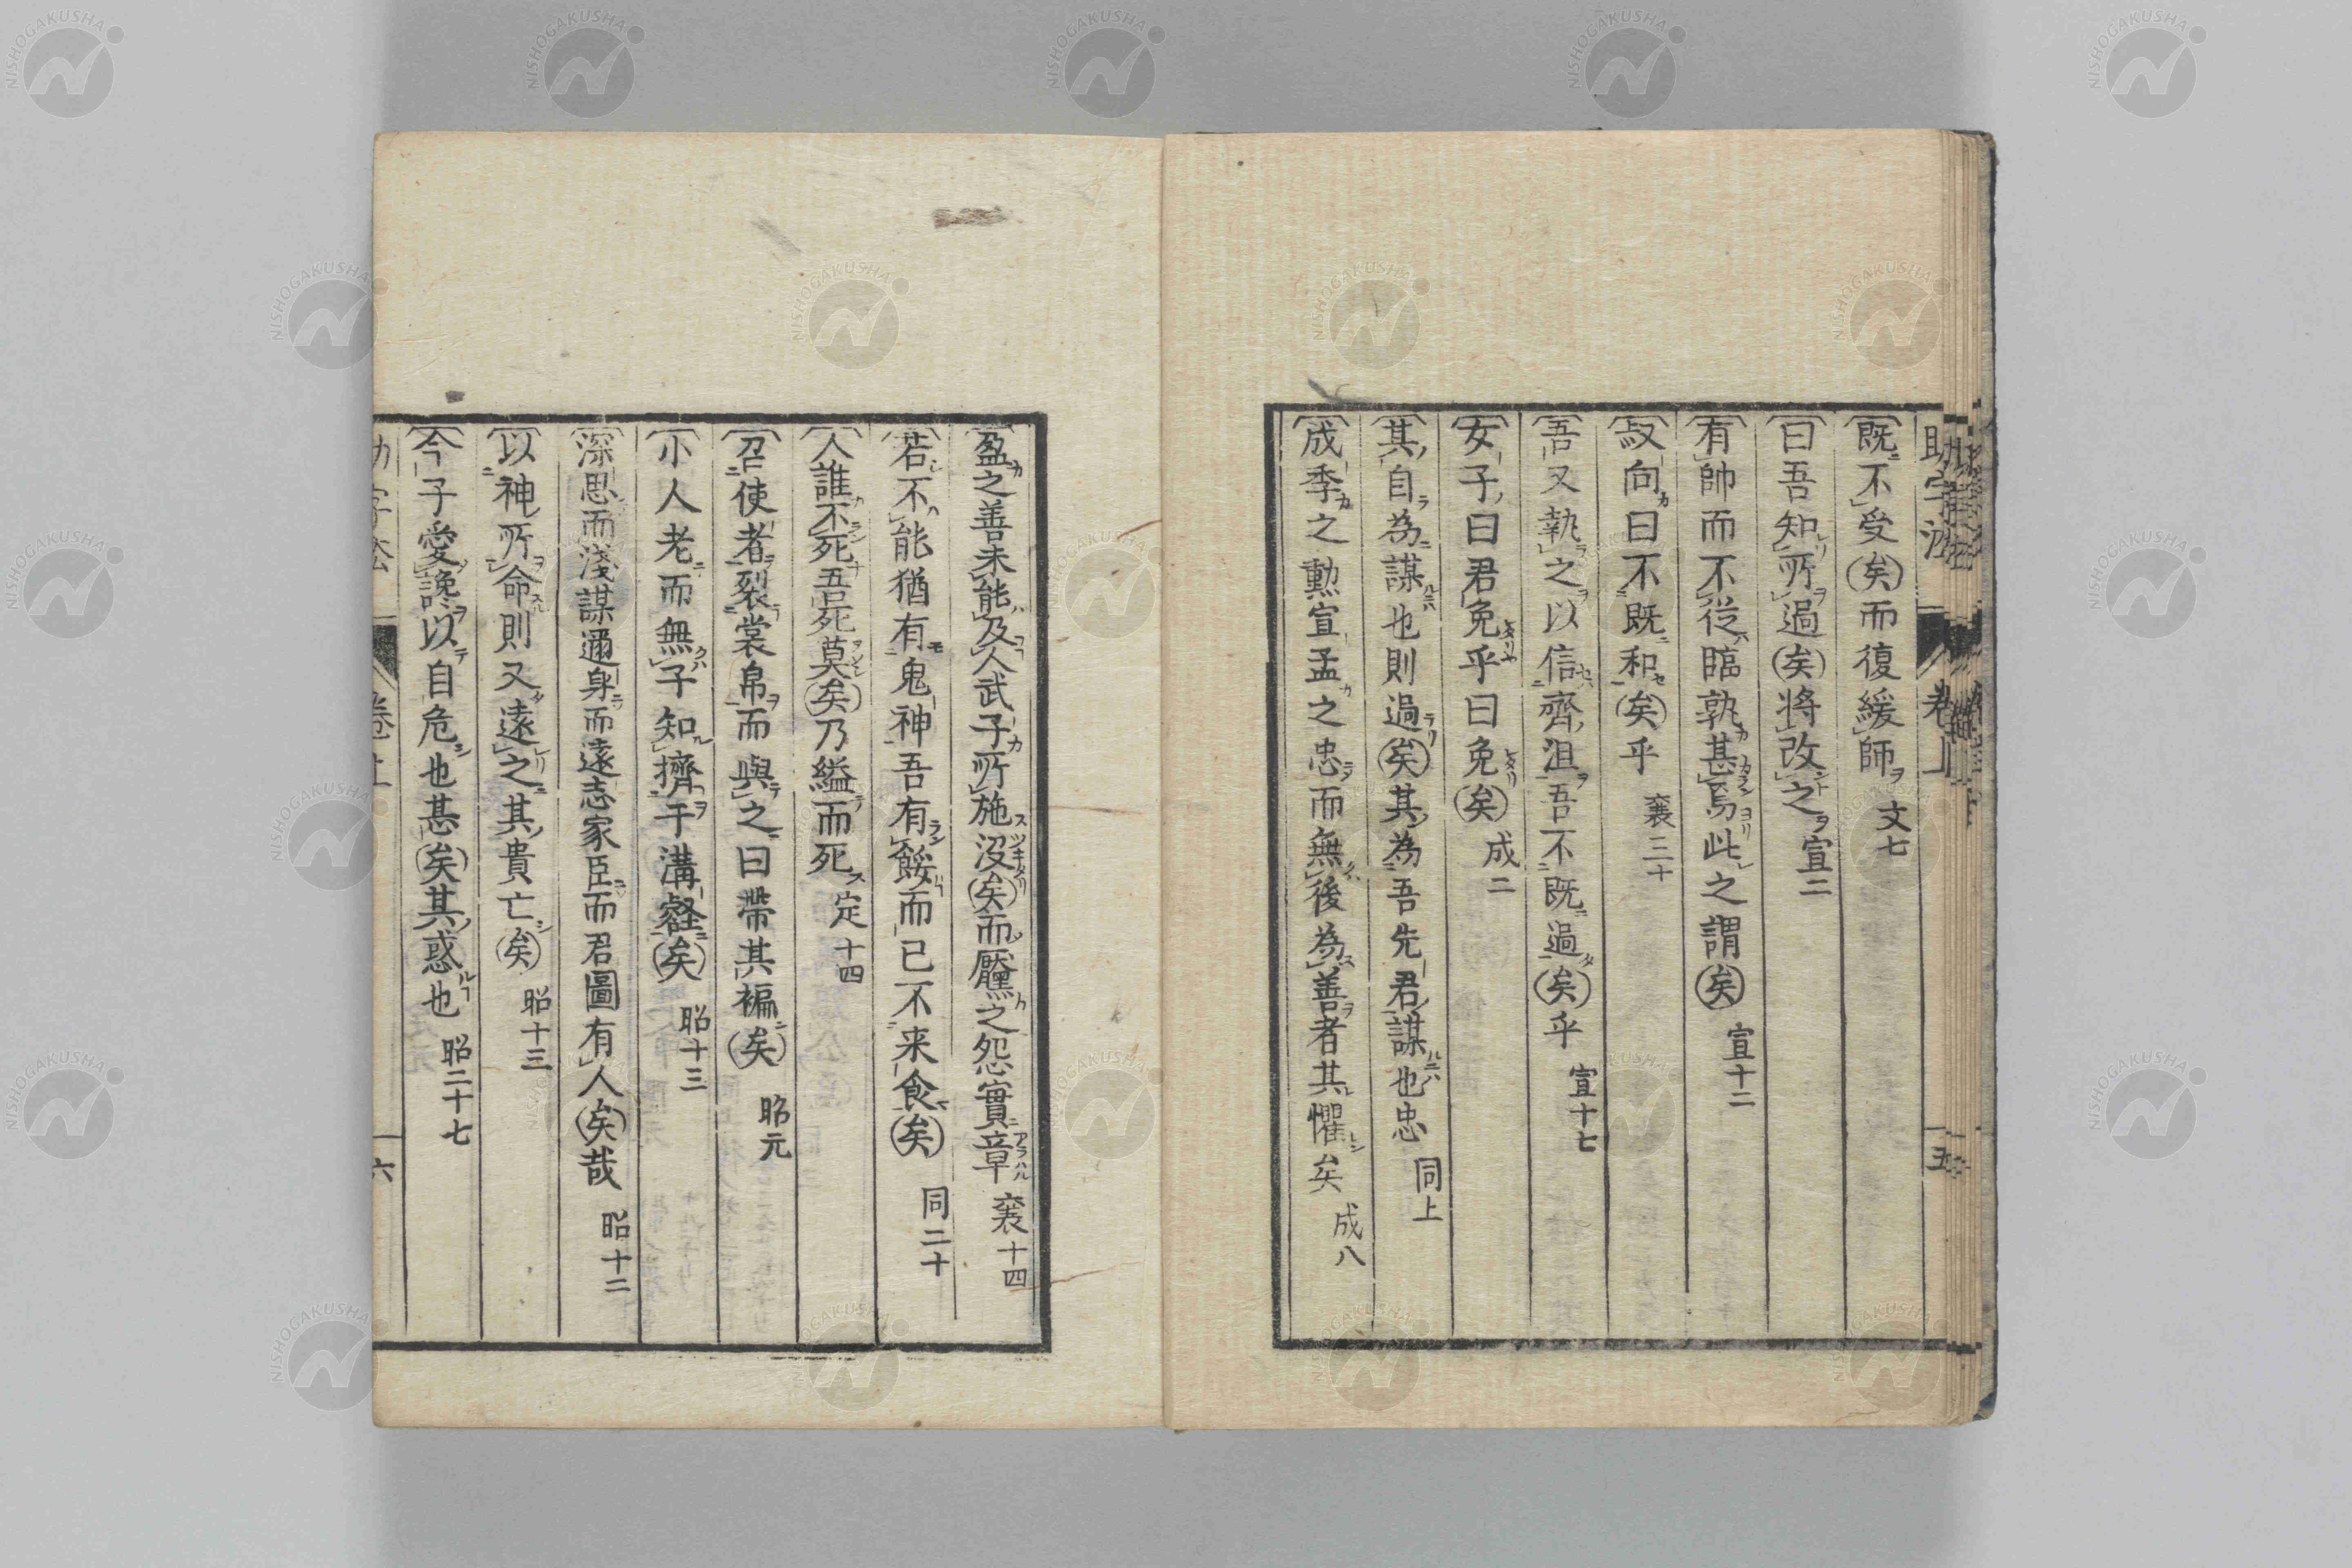 既不受矣而復緩師 文七
曰吾知所過矣將改之 宣二
有帥而不從臨孰甚焉此之謂矣 宣十二
叔向曰不既和矣乎 襄三十
吾又執之以信齊沮吾不既過矣乎 宣十七
女子曰君免乎曰免矣 成二
其自為謀也則過矣其為吾先君謀也忠 同上
成季之勲宣孟之忠而無後為善者其懼矣 成八
盈之善未能及人武子所施没矣而黶之怨實章 襄十四
若不能猶有鬼神吾有餒而已不来食矣 同二十
人誰不死吾死莫矣乃縊而死 定十四
召使者裂裳帛而與之曰帶其褊矣 昭元
小人老而無子知擠于溝壑矣 昭十三
深思而淺謀邇身而遠志家臣而君圖有人矣哉 昭十二
以神所命則又遠之其貴亡矣 昭十三
今子愛讒以自危也甚矣其惑也 昭二十七
六
NISHOGAKUSHA